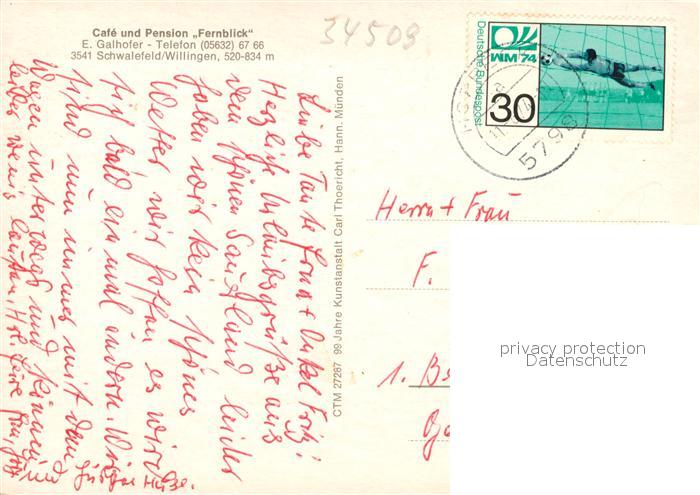 Café und Pension „Fernblick"
E. Galhofer - Telefon (05632) 67 66
3541 Schwalefeld/Willingen, 520-834 m
34509
Deutsche Bundespost
WM 74
30
5798
CTM 27287 99 Jahre Kunstanstalt Carl Thoericht, Hann. Münden
Liebe Tante Erna + Onkel Fritz!
Herzliche Urlaubsgrüße aus
dem schönen Sauerland leider
haben wir kein schönes
Wetter wir hoffen es wird
sich bald einmal ändern. Wir
sind nun immer mit dem
waren unterwegs und können
leider wenig laufen.
Herrn + Frau
F.
1. Be
Ga
privacy protection
Datenschutz